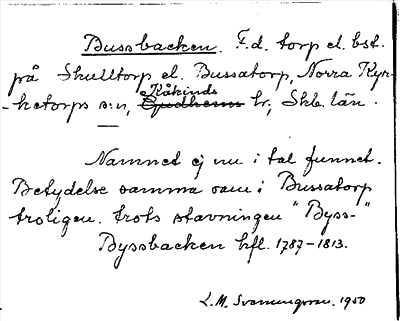 Bussbacken. F.d. torp el. bst.
på Skulltorp el. Bussatorp, Norra Kyr-
-ketorps s:n, Kåkinds Gudhems hd, Skb. län.
Namnet ej nu i tal funnet.
Betydelse samma som i Bussatorp
troligen. trots stavningen "Byss-"
Byssbacken hfl. 1787-1813.
L.M. Svenungsson. 1950